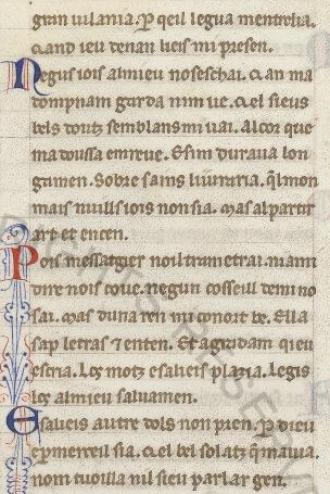 gran uilania. Per qeil legua mentelia.
& and ieu denan lieis mi presen.
Negus iois al mieu nos eschai. & an ma
compnam garda nim ue. & el sieus
bels doutz semblans mi uai. Al cor que
ma doussa em reue. E sim duraua lon
gamen. Sobre sains li iuraria. q̃l mon
mais nuills iois non sia. mas al partir
art et encen.
Pois messatgier noil trametrai. ni a mi
dire nois coue. negun cosseill de mi no
sai. mas duna ren mi conort be. Ella
sap letras 7 enten. Et agradam qieu
escria. Los motz e salieis plazia. Legis
los al mieu saluamen.
E salieis autre dols non pren. Per dieu
e per merceil sia. & el bel solatz q̃m auia.
nom tuoilla nil sieu parlar gen.